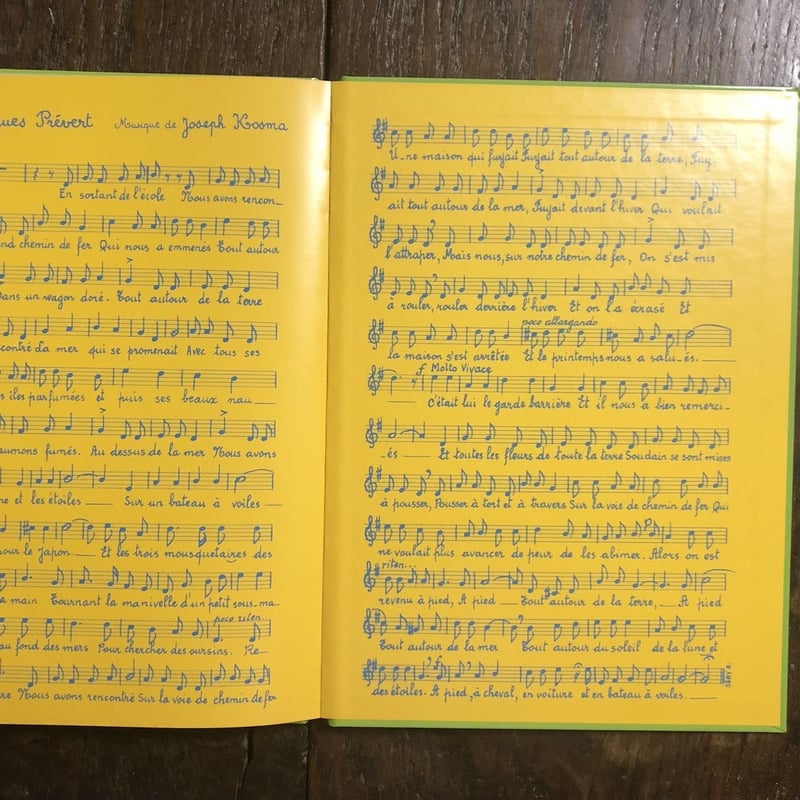 ues Prévert Musique de Joseph Kosma
En sortant de l'école Nous avons rencon_
nd chemin de fer Qui nous a emmenés Tout autour
Dans un wagon doré. Tout autour de la terre
contré la mer qui se promenait Avec tous ses
s îles parfumées et puis ses beaux nau_
aumons fumés. Au dessus de la mer Nous avons
ne et les étoiles Sur un bateau à voiles
pour le Japon. Et les trois mousquetaires des
a main Tournant la manivelle d'un petit sous_ma_
poco riten...
au fond des mers Pour chercher des oursins. Re_
re Nous avons rencontré Sur la voie de chemin de fer
U_ne maison qui fuyait Fuyait tout autour de la terre, Fuy_
ait tout autour de la mer, Fuyait devant l'hiver Qui voulait
l'attraper, Mais nous, sur notre chemin de fer, On s'est mis
à rouler, rouler derrière l'hiver Et on l'a écrasé Et
poco allargando
la maison s'est arrêtée Et le printemps nous a salu_és.
f Molto Vivace
C'était lui le garde barrière Et il nous a bien remerci_
_és Et toutes les fleurs de toute la terre Soudain se sont mises
à pousser, Pousser à tort et à travers Sur la voie de chemin de fer Qui
ne voulait plus avancer de peur de les abimer. Alors on est
riten...
revenu à pied, A pied Tout autour de la terre, A pied
Tout autour de la mer Tout autour du soleil de la lune et
des étoiles. A pied, à cheval, en voiture et en bateau à voiles.